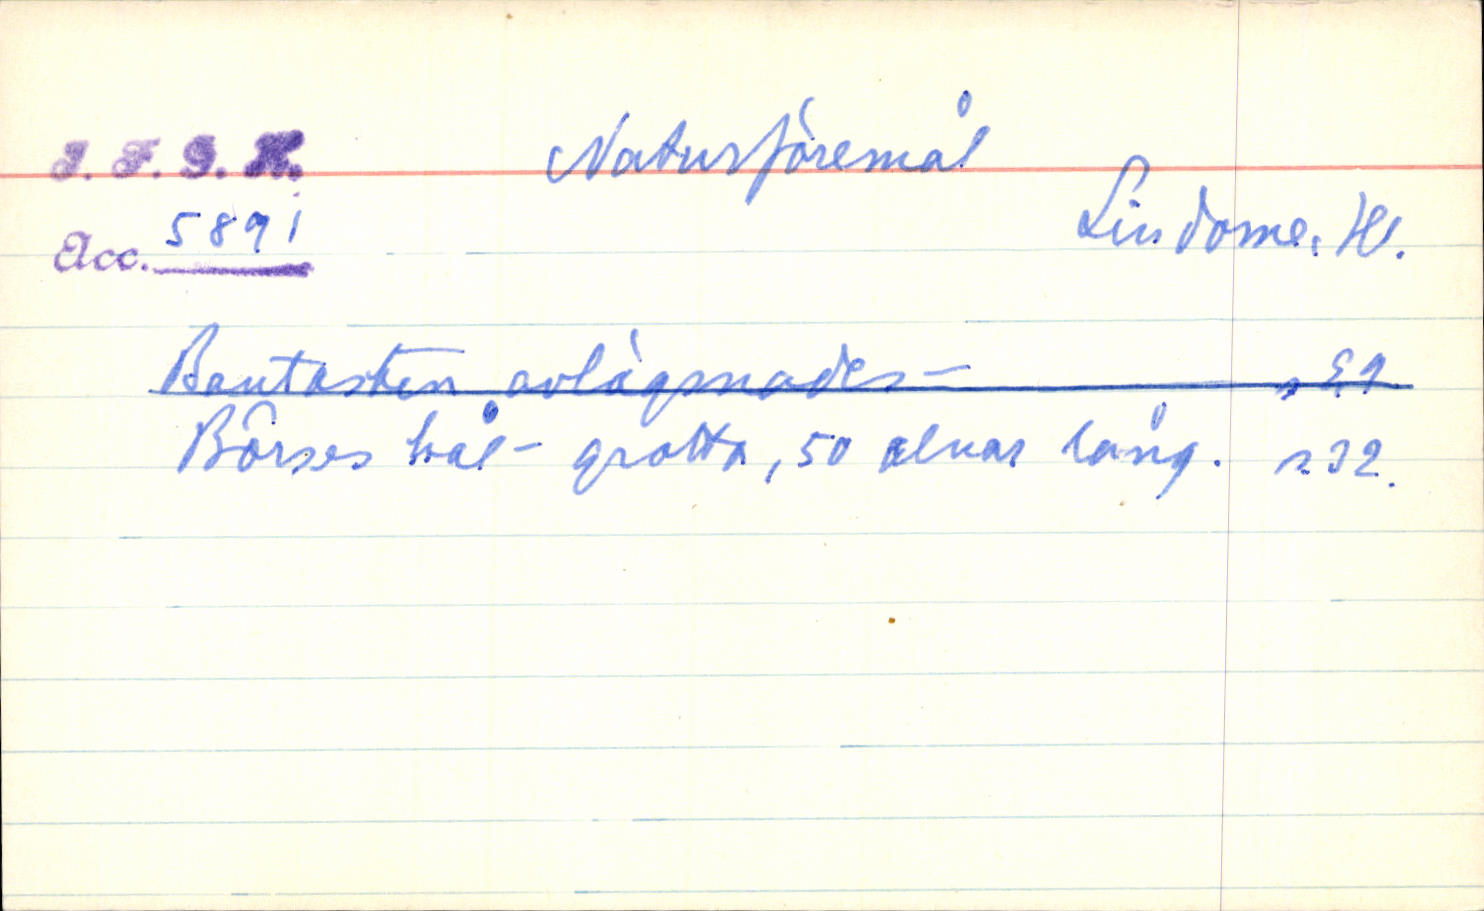 I. F. G. H.
Naturföremål
Acc. 5891
Lindome, H.
Bautasten avlägsnades –
Börses hål – grotta, 50 alnar lång. s 32.